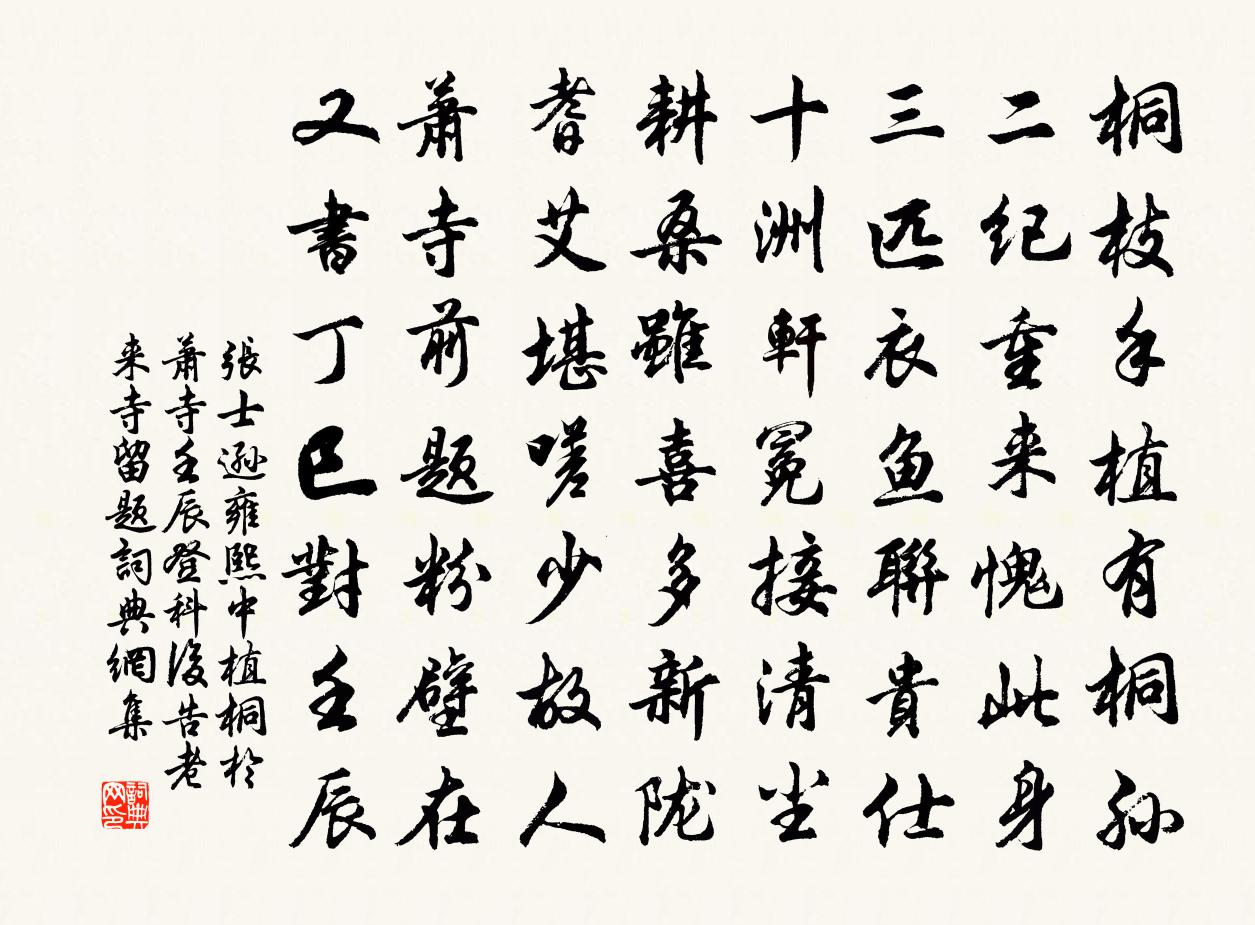 桐枝手植有桐孙
二纪重来愧此身
三匹衣鱼聨貴仕
十洲軒冕接清尘
耕桑雖喜多新陇
耆艾堪嗟少故人
萧寺前题粉壁在
又書丁巳對壬辰
張士遜雍熙中植桐於
萧寺壬辰登科後告老
来寺留题詞典網集
詞典网印